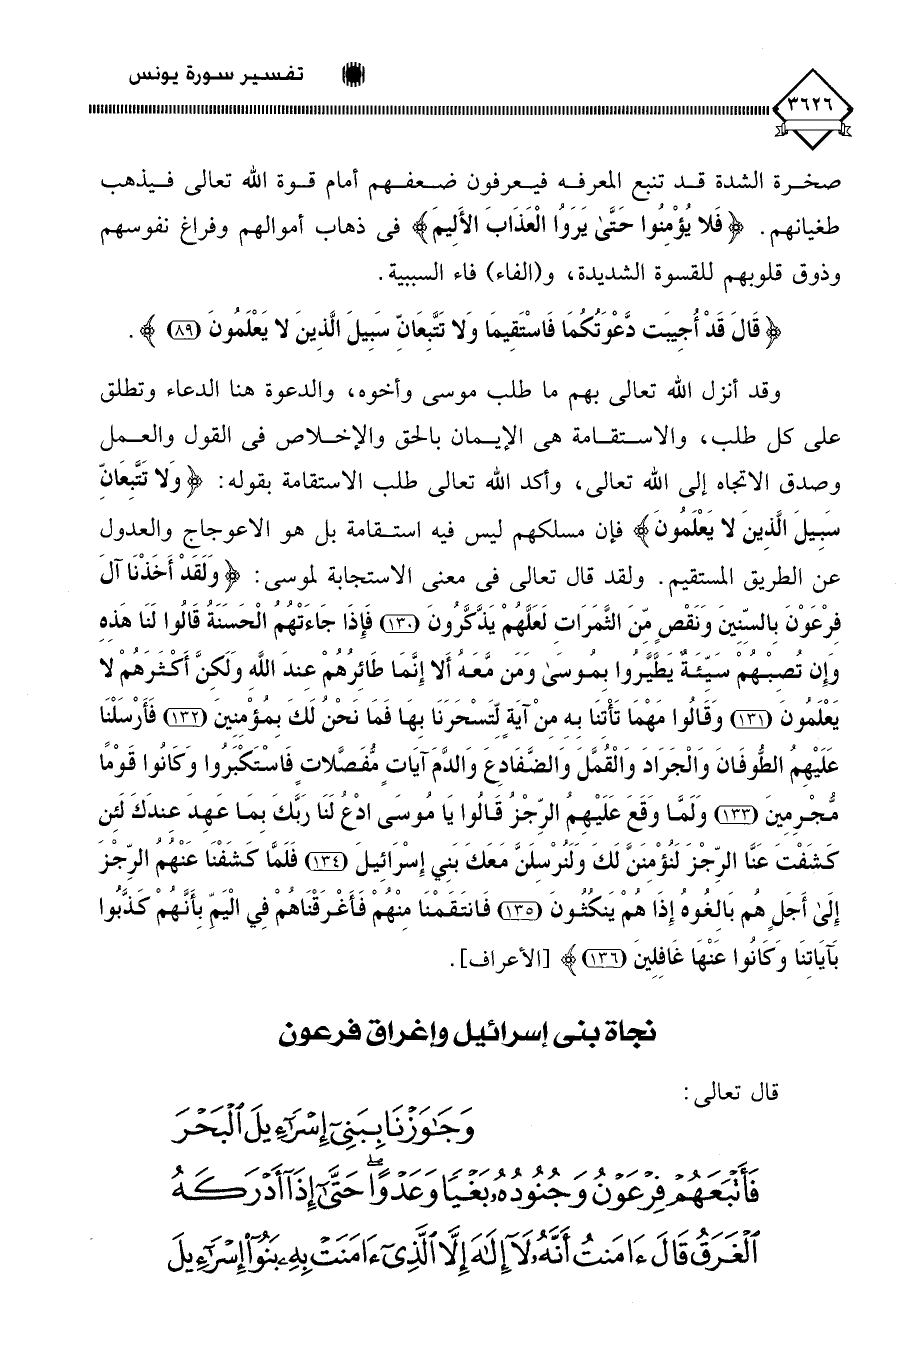 تفسير سورة يونس
٣٦٢٦
صخرة الشدة قد تنبع المعرفه فيعرفون ضعفهم أمام قوة الله تعالى فيذهب
طغيانهم. ﴿فَلا يُؤْمِنُوا حَتَّىٰ يَرَوُا الْعَذَابَ الأَلِيمَ﴾ فى ذهاب أموالهم وفراغ نفوسهم
وذوق قلوبهم للقسوة الشديدة، و(الفاء) فاء السببية.
﴿قَالَ قَدْ أُجِيبَت دَّعْوَتُكُمَا فَاسْتَقِيمَا وَلا تَتَّبِعَانِّ سَبِيلَ الَّذِينَ لا يَعْلَمُونَ (٨٩)﴾.
وقد أنزل الله تعالى بهم ما طلب موسى وأخوه، والدعوة هنا الدعاء وتطلق
على كل طلب، والاستقامة هى الإيمان بالحق والإخلاص فى القول والعمل
وصدق الاتجاه إلى الله تعالى، وأكد الله تعالى طلب الاستقامة بقوله: ﴿وَلا تَتَّبِعَانِّ
سَبِيلَ الَّذِينَ لا يَعْلَمُونَ﴾ فإن مسلكهم ليس فيه استقامة بل هو الاعوجاج والعدول
عن الطريق المستقيم. ولقد قال تعالى فى معنى الاستجابة لموسى: ﴿وَلَقَدْ أَخَذْنَا آلَ
فِرْعَوْنَ بِالسِّنِينَ وَنَقْصٍ مِّنَ الثَّمَرَاتِ لَعَلَّهُمْ يَذَّكَّرُونَ (١٣٠) فَإِذَا جَاءَتْهُمُ الْحَسَنَةُ قَالُوا لَنَا هَذِهِ
وَإِن تُصِبْهُمْ سَيِّئَةٌ يَطَّيَّرُوا بِمُوسَىٰ وَمَن مَّعَهُ أَلا إِنَّمَا طَائِرُهُمْ عِندَ اللَّهِ وَلَكِنَّ أَكْثَرَهُمْ لا
يَعْلَمُونَ (١٣١) وَقَالُوا مَهْمَا تَأْتِنَا بِهِ مِنْ آيَةٍ لِّتَسْحَرَنَا بِهَا فَمَا نَحْنُ لَكَ بِمُؤْمِنِينَ (١٣٢) فَأَرْسَلْنَا
عَلَيْهِمُ الطُّوفَانَ وَالْجَرَادَ وَالْقُمَّلَ وَالضَّفَادِعَ وَالدَّمَ آيَاتٍ مُّفَصَّلاتٍ فَاسْتَكْبَرُوا وَكَانُوا قَوْمًا
مُّجْرِمِينَ (١٣٣) وَلَمَّا وَقَعَ عَلَيْهِمُ الرِّجْزُ قَالُوا يَا مُوسَى ادْعُ لَنَا رَبَّكَ بِمَا عَهِدَ عِندَكَ لَئِن
كَشَفْتَ عَنَّا الرِّجْزَ لَنُؤْمِنَنَّ لَكَ وَلَنُرْسِلَنَّ مَعَكَ بَنِي إِسْرَائِيلَ (١٣٤) فَلَمَّا كَشَفْنَا عَنْهُمُ الرِّجْزَ
إِلَىٰ أَجَلٍ هُم بَالِغُوهُ إِذَا هُمْ يَنكُثُونَ (١٣٥) فَانتَقَمْنَا مِنْهُمْ فَأَغْرَقْنَاهُمْ فِي الْيَمِّ بِأَنَّهُمْ كَذَّبُوا
بِآيَاتِنَا وَكَانُوا عَنْهَا غَافِلِينَ (١٣٦)﴾ [الأعراف].
نجاة بنى إسرائيل وإغراق فرعون
قال تعالى:
وَجَٰوَزْنَا بِبَنِىٓ إِسْرَٰٓءِيلَ ٱلْبَحْرَ
فَأَتْبَعَهُمْ فِرْعَوْنُ وَجُنُودُهُۥ بَغْيًا وَعَدْوًاۖ حَتَّىٰٓ إِذَآ أَدْرَكَهُ
ٱلْغَرَقُ قَالَ ءَامَنتُ أَنَّهُۥ لَآ إِلَٰهَ إِلَّا ٱلَّذِىٓ ءَامَنَتْ بِهِۦ بَنُوٓا۟ إِسْرَٰٓءِيلَ